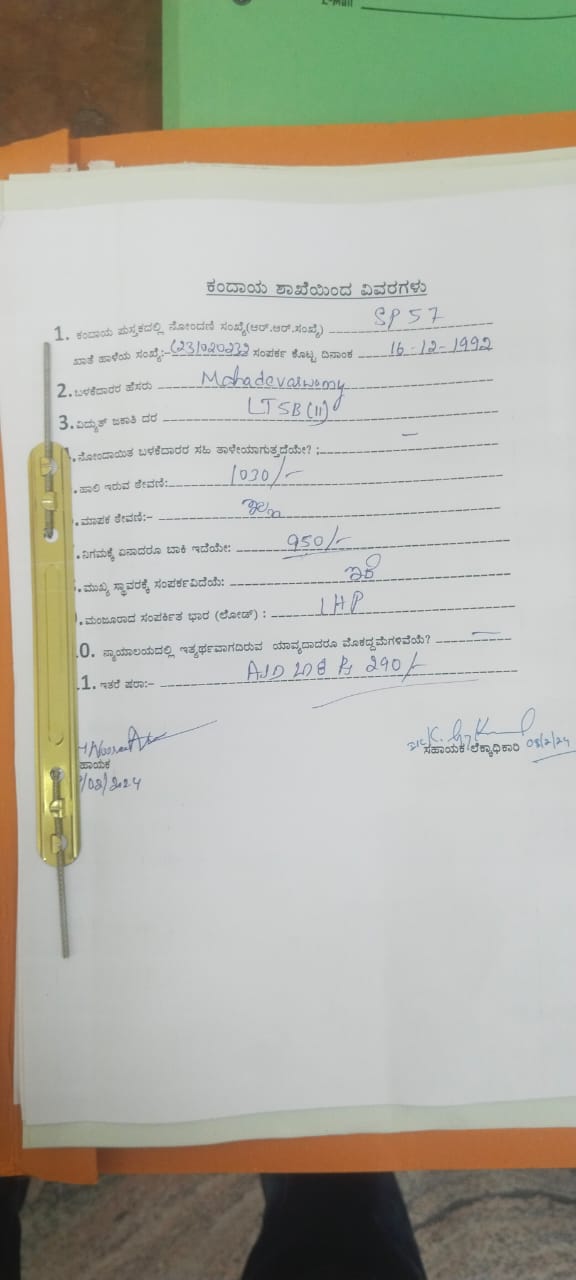 E-Mail
ಕಂದಾಯ ಶಾಖೆಯಿಂದ ವಿವರಗಳು
1. ಕಂದಾಯ ಪುಸ್ತಕದಲ್ಲಿ ನೋಂದಣಿ ಸಂಖ್ಯೆ(ಆರ್.ಆರ್.ಸಂಖ್ಯೆ) SP 57
ಖಾತೆ ಹಾಳೆಯ ಸಂಖ್ಯೆ:- ಸಂಪರ್ಕ ಕೊಟ್ಟ ದಿನಾಂಕ 16-12-1992
2. ಬಳಕೆದಾರರ ಹೆಸರು Mahadevaswamy
3. ವಿದ್ಯುತ್ ಜಕಾತಿ ದರ LT5B(II)
. ನೋಂದಾಯಿತ ಬಳಕೆದಾರರ ಸಹಿ ತಾಳೇಯಾಗುತ್ತದೆಯೇ? : –
. ಹಾಲಿ ಇರುವ ಠೇವಣಿ: 1030/-
. ಮಾಪಕ ಠೇವಣಿ:-
. ನಿಗಮಕ್ಕೆ ಏನಾದರೂ ಬಾಕಿ ಇದೆಯೇ: 950/-
. ಮುಖ್ಯ ಸ್ಥಾವರಕ್ಕೆ ಸಂಪರ್ಕವಿದೆಯೆ: ಇದೆ
. ಮಂಜೂರಾದ ಸಂಪರ್ಕಿತ ಭಾರ (ಲೋಡ್) : 1HP
0. ನ್ಯಾಯಾಲಯದಲ್ಲಿ ಇತ್ಯರ್ಥವಾಗದಿರುವ ಯಾವ್ಯದಾದರೂ ಮೊಕದ್ದಮೆಗಳಿವೆಯೆ? —
1. ಇತರೆ ಷರಾ:- 290/-
ಹಾಯಕ ಸಹಾಯಕ ಲೆಕ್ಕಾಧಿಕಾರಿ 08/2/24
/02/2024